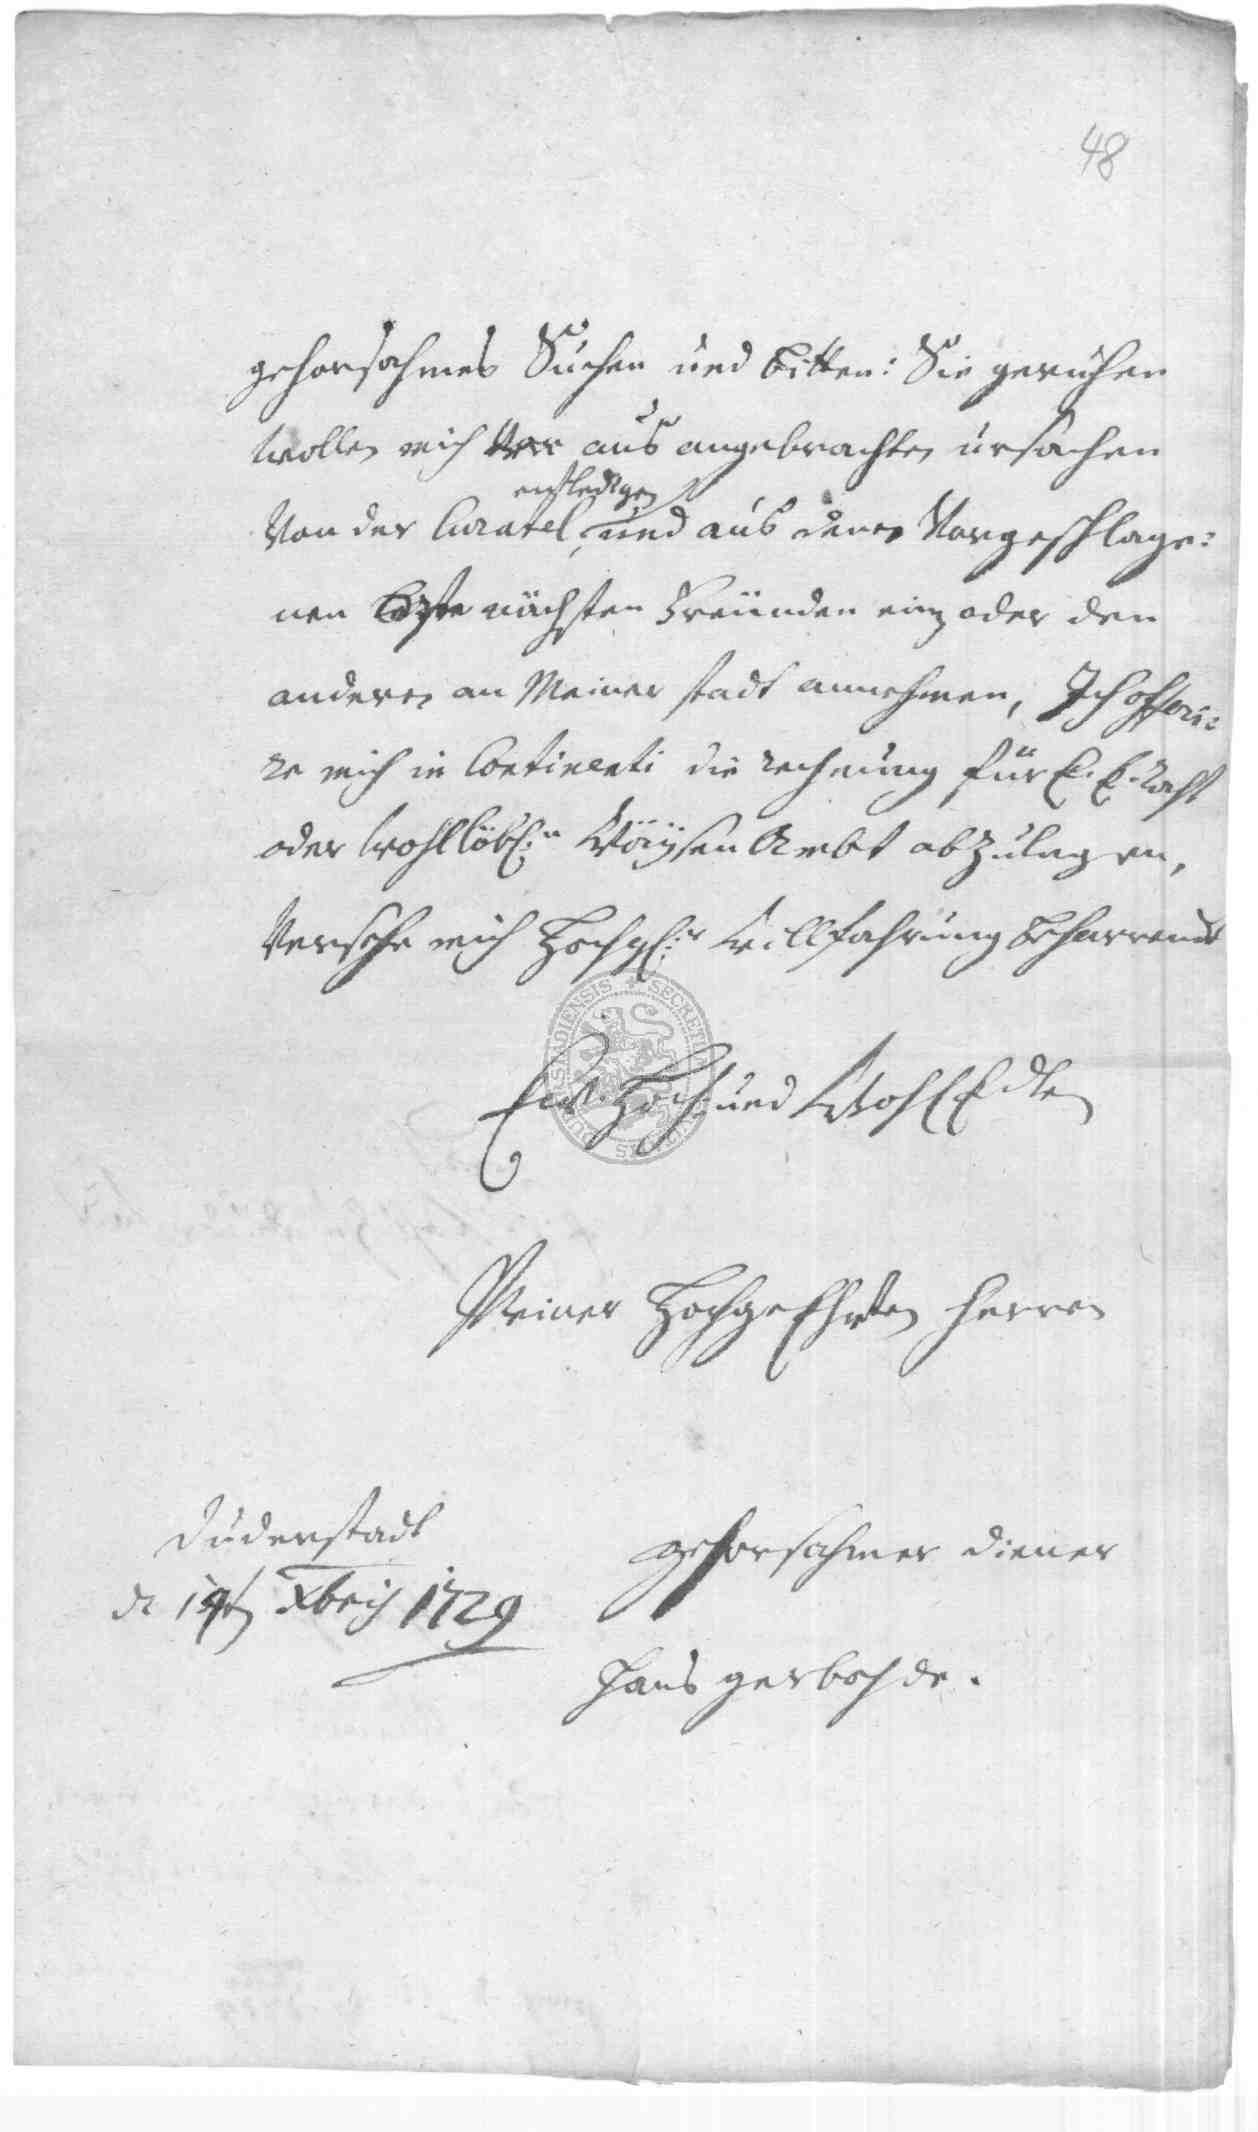 48
gehorsahmes Suchen und bitten: Sie geruhen
wollen mich aus angebrachten ursachen
Von der Curatel entledigen, und aus denen Vorgeschlage:
nen nächsten Freünden ein oder den
anderen an Meiner stadt annehmen, Ich offeri:
re mich in Continenti die rechnung für E. E. Raht
oder wohllöbl:n Wäysen Ambt abzulegen,
Versehe mich Hochgl:r Willfahrung beharrend
Ew. Hoch: und WohlEdlen
Meiner HochgeEhrten Herren
Duderstadt
d 14t Xbris 1729
gehorsahmer diener
Hans gerbohde.